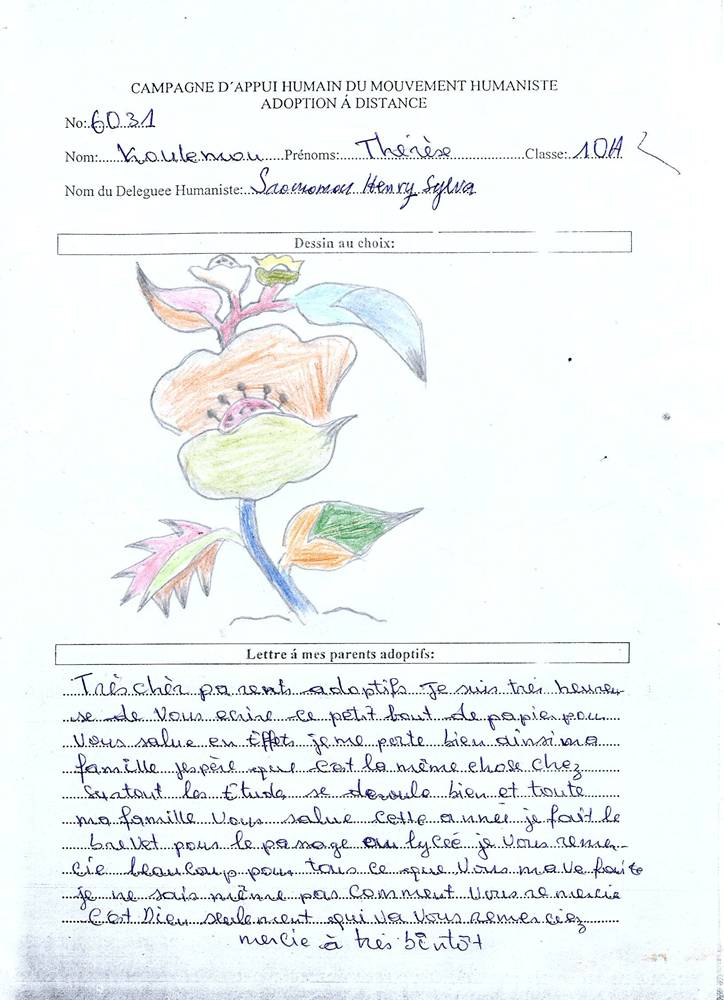 CAMPAGNE D´APPUI HUMAIN DU MOUVEMENT HUMANISTE
ADOPTION Á DISTANCE
No:6031
Nom: Koulemou Prénoms: Thérèse Classe: 10A
Nom du Deleguee Humaniste: Henry Sylva
Dessin au choix:
Lettre á mes parents adoptifs:
Très chèr parents adoptifs Je suis très heureu
se de Vous ecrire ce petit bout de papier pou
Vous salue en Effets je me porte bien ainsi ma
famille jespère que c'est la même chose chez
Surtout les Etude se deroule bien et toute
ma famille Vous salue cette année je fait le
brevet pour le passage au lyceé je Vous remer-
cie beaucoup pour tous ce que Vous mave faite
je ne sais même pas comment Vous remercie
C'est Dieu seulement qui va Vous remerciez
mercie à très bentôt